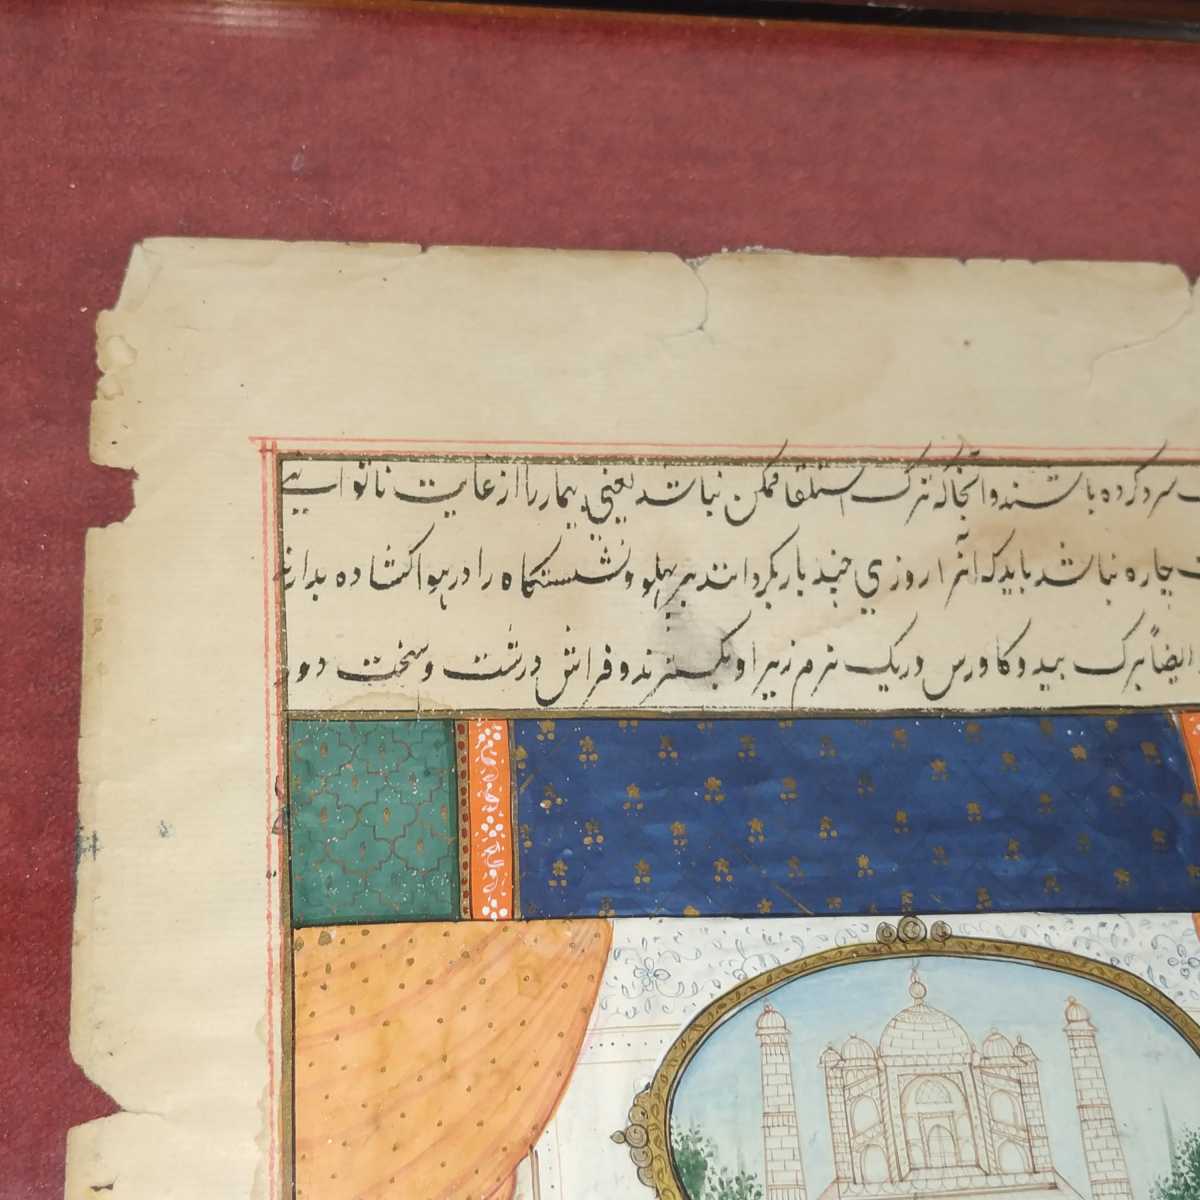 سرد کرده باشند و آنجا که ترک استلقا ممکن نباشد یعنی بیمار را از غایت ناتوانی
چاره نباشد باید که انرا روزی چند بار بگردانند بر پهلو و نشستنگاه را در هوا کشاده بدارند
ایضاً برک بید و کاورس و ریک نرم زیر او بگسترند و فراش درشت و سخت دور